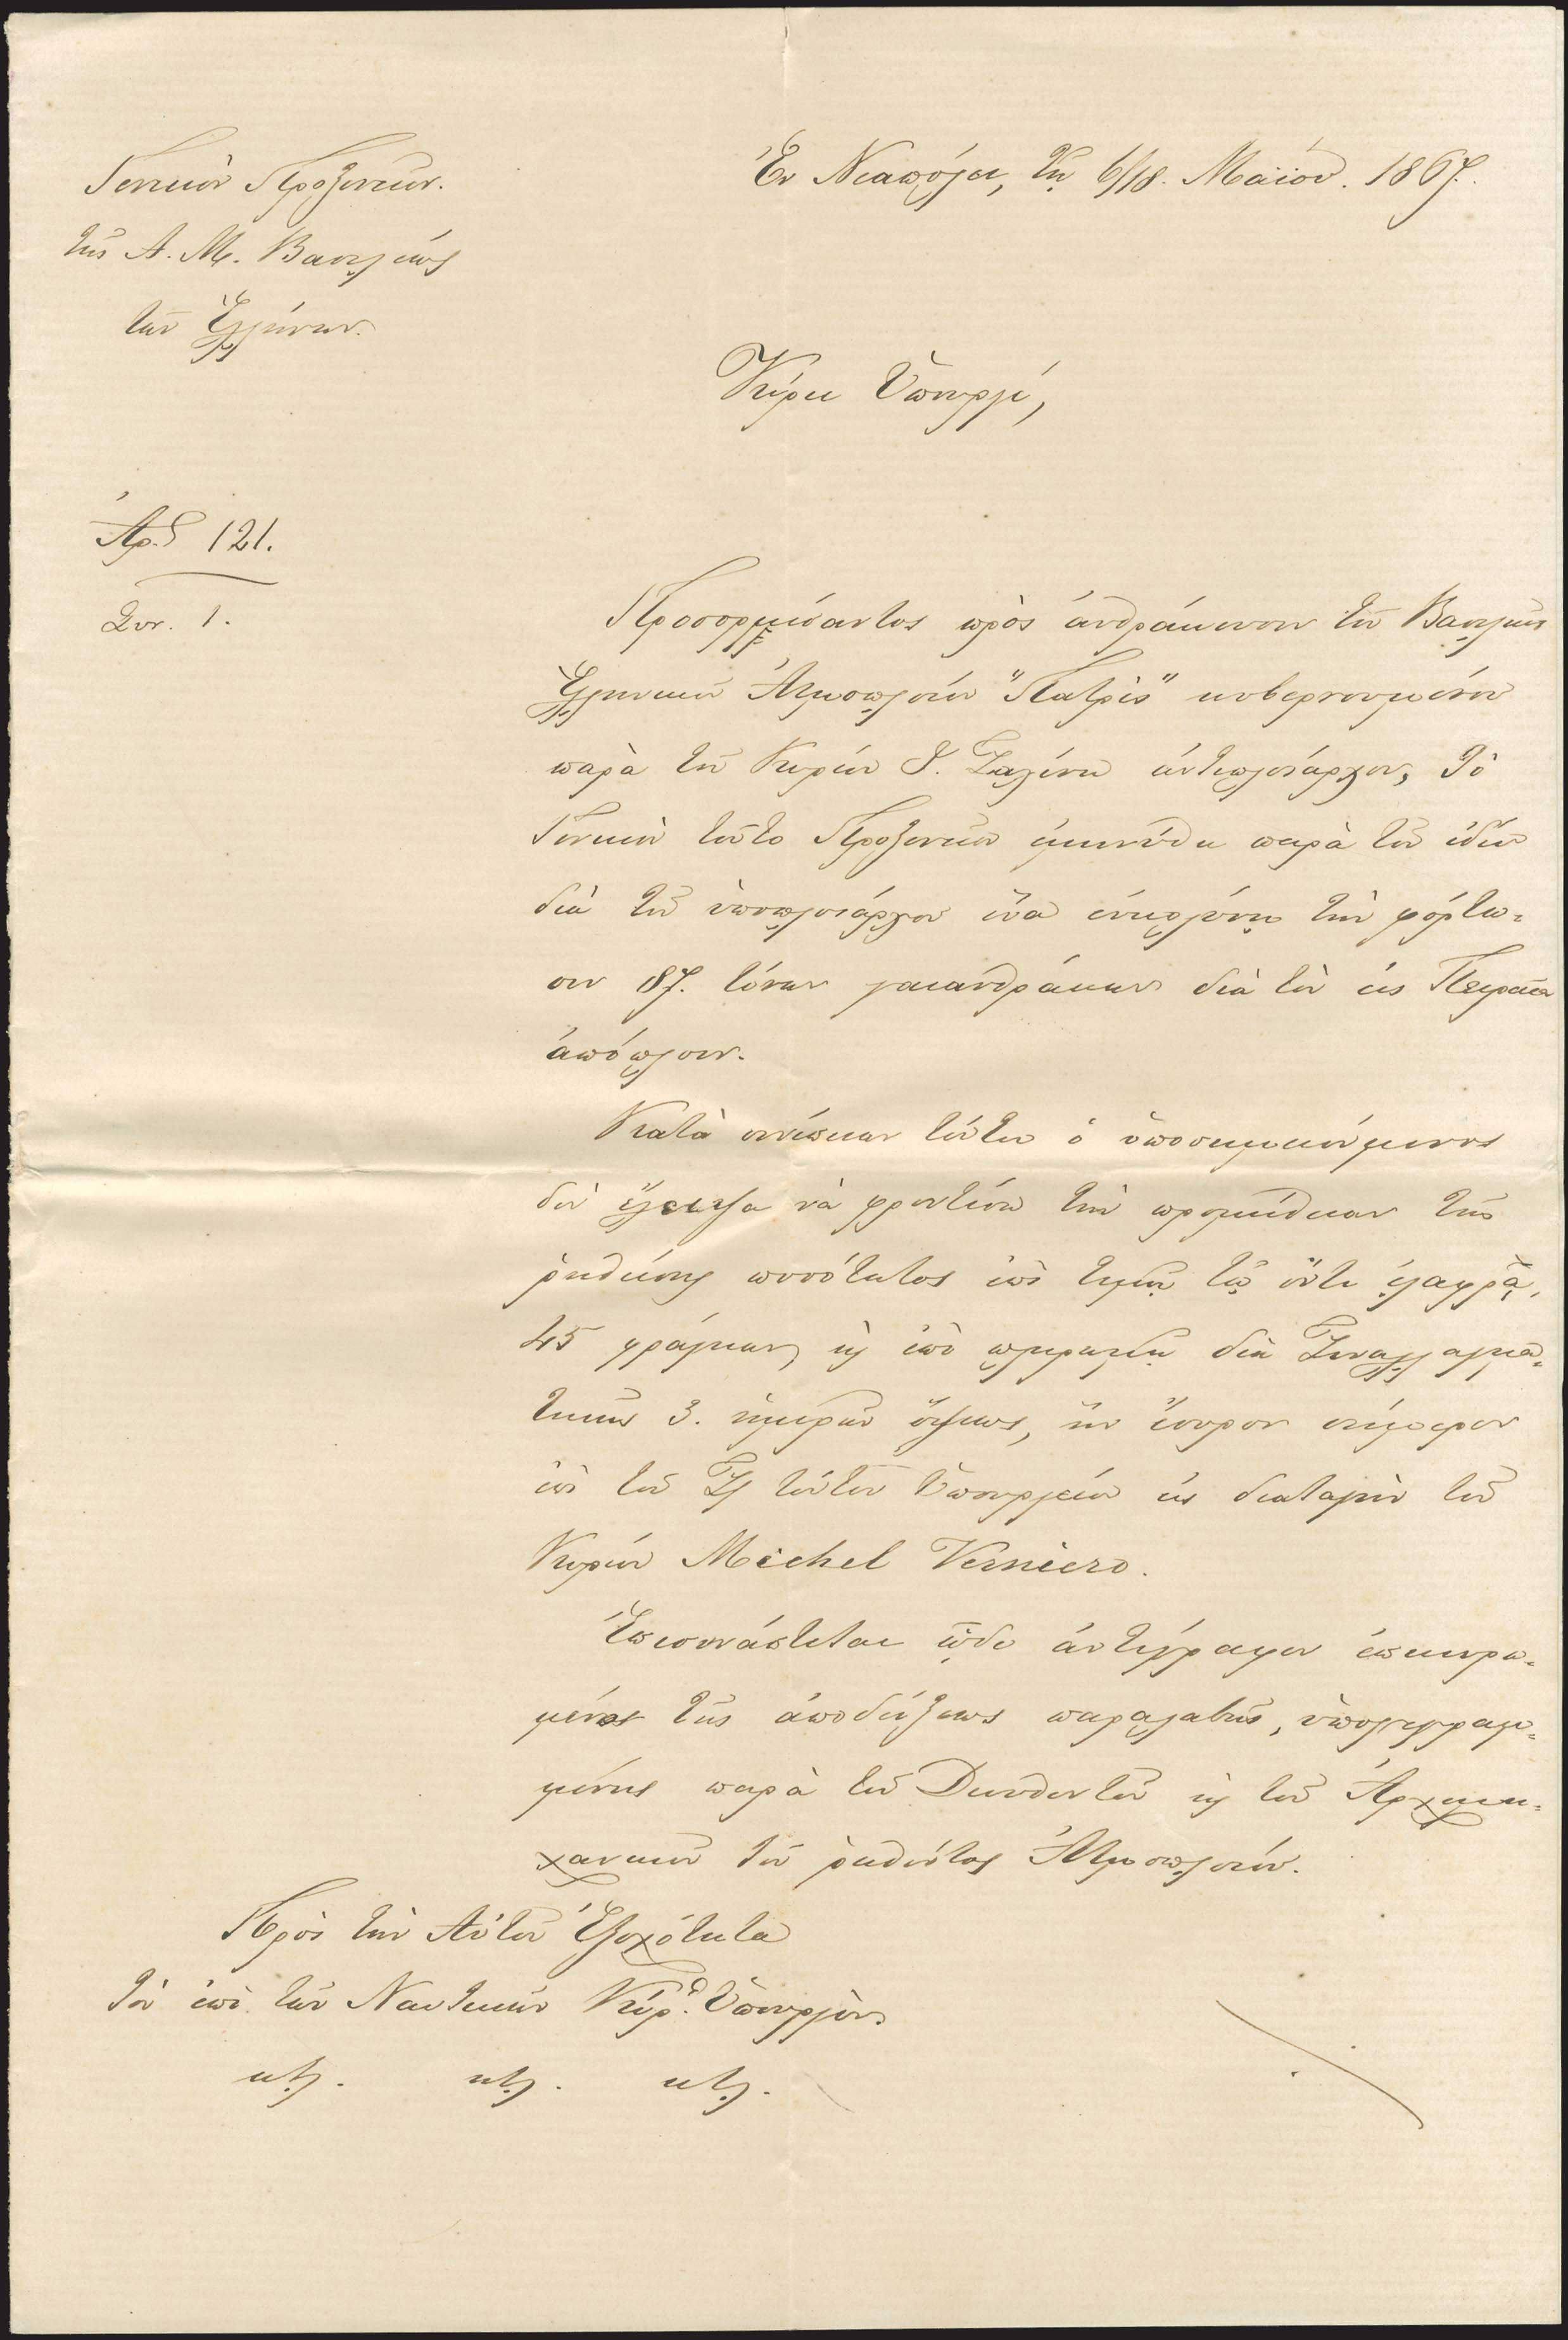 Γενικὸν Προξενεῖον.
τῆς Α. Μ. Βασιλέως
τῶν Ἑλλήνων.
Ἐν Νεαπόλει, τῇ 6/18. Μαΐου. 1867.
Κύριε Ὑπουργέ,
Ἀρ.θ 121.
Συν. 1.
Προσορμίσαντος πρὸς ἀνθράκωσιν τοῦ Βασιλικοῦ
Ἑλληνικοῦ Ἀτμοπλοίου "Πατρὶς" κυβερνουμένου
παρὰ τοῦ Κυρίου Σ. ἀντιπλοιάρχου, τὸ
Γενικὸν τοῦτο Προξενεῖον ἐμηνύθη παρὰ τοῦ ἰδίου
διὰ τοῦ ὑποπλοιάρχου ἵνα εὐκολύνῃ τὴν φόρτω-
σιν 87. τόνων γαιανθράκων διὰ τὸν εἰς Πειραιᾶ
ἀπόπλουν.
Κατὰ συνέπειαν τούτου ὁ ὑποσημειούμενος
δὲν ἔλειψα νὰ φροντίσω τὴν προμήθειαν τῆς
ῥηθείσης ποσότητος ἐπὶ τιμῇ τῷ ὄντι ἐλαφρᾷ,
45 φράγκων, κ ἐπὶ πληρωμῇ διὰ Συναλλαγμα-
τικῆς 3. ἡμερῶν ὄψεως, ἣν ἔσυρον σήμερον
ἐπὶ τοῦ Σ/ τούτου Ὑπουργείου εἰς διαταγὴν τοῦ
Κυρίου Michel Verniero.
Ἐπισυνάπτεται ὧδε ἀντίγραφον ἐπικυρω-
μένον τῆς ἀποδείξεως παραλαβῆς, ὑπογεγραμ-
μένης παρὰ τοῦ Διευθυντοῦ κ τοῦ Ἀρχιμη-
χανικοῦ τοῦ ῥηθέντος Ἀτμοπλοίου.
Πρὸς τὴν Αὐτοῦ Ἐξοχότητα
τὸν ἐπὶ τῶν Ναυτικῶν Κύρ. Ὑπουργὸν.
κτλ. κτλ. κτλ.